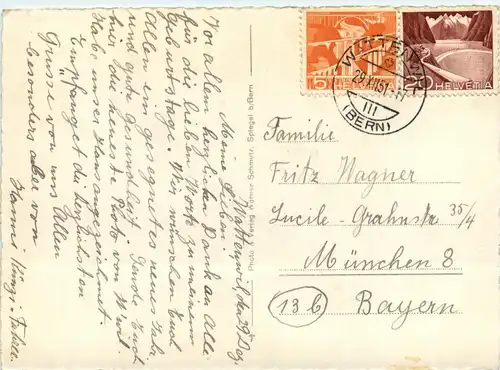 Wattenwil, den 29. Dez.
Meine Lieben!
Vor allem herzlichen Dank an Alle
für die lieben Worte zu meinem
Geburtstage. Wir wünschen Euch
Allen ein gesegnetes neues Jahr
und gute Gesundheit. Sende Euch
hie die neueste Photo von W'wil.
Habe unser Haus angezeichnet.
Empfanget die herzlichsten
Grüsse von uns Allen
besonders aber von
Hanni
Photo & Verlag Schmutz, Spiegel b/Bern
5 HELVETIA
HELVETIA
WATTENWIL
29.XII.51
III
(BERN)
Familie
Fritz Wagner
Lucile-Grahnstr 35/4
München 8
13b Bayern